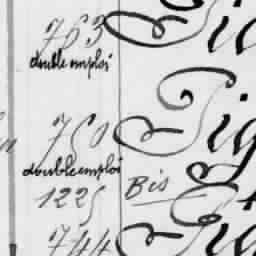 763 Tig
double emploi
750 Tig
double emploi
1225 Bis
744 Tig